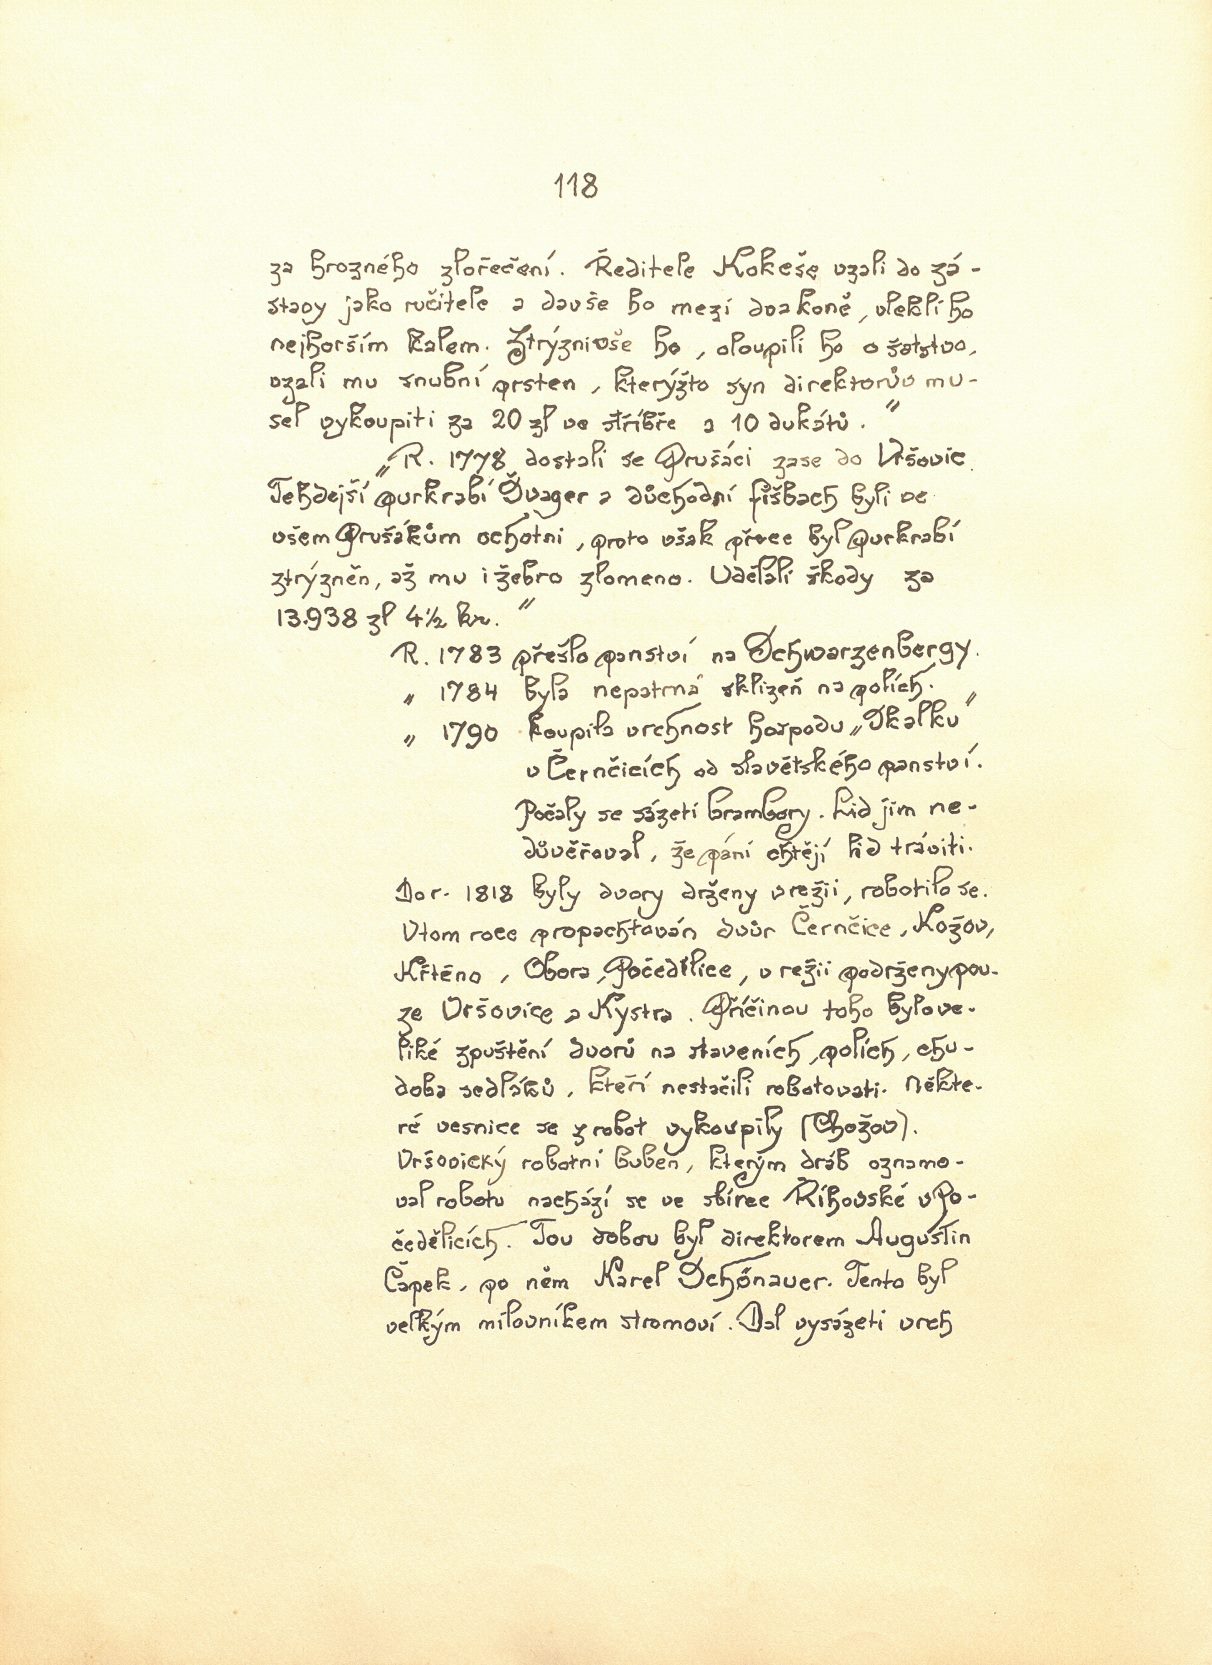 118
za hrozného zlořečení. Ředitele Kokeše vzali do zá-
stavy jako ručitele a davše ho mezi dva koně, vlekli ho
nejhorším kalem. Ztrýznivše ho, oloupili ho o šatstvo,
vzali mu snubní prsten, kterýžto syn direktorův mu-
sel vykoupiti za 20 zl ve stříbře a 10 dukátů."
„R. 1778 dostali se Prušáci zase do Vršovic.
Tehdejší purkrabí Švager a důchodní Fišbach byli ve
všem Prušákům ochotni, proto však přece byl purkrabí
ztrýzněn, až mu i žebro zlomeno. Udělali škody za
13.938 zl 4½ kr."
R. 1783 přešlo panství na Schwarzenbergy.
„ 1784 byla nepatrná sklizeň na polích.
„ 1790 koupila vrchnost hospodu „Skalku"
v Černčicích od slavětského panství.
Počaly se sázeti brambory. Lid jim ne-
důvěřoval, že páni chtějí lid tráviti.
Do r. 1818 byly dvory drženy v režii, robotilo se.
V tom roce propachtován dvůr Černčice, Kožov,
Křtěno, Obora, Počedělice, v režii podrženy pou-
ze Vršovice a Kystra. Příčinou toho bylo ve-
liké zpuštění dvorů na staveních, polích, chu-
doba sedláků, kteří nestačili robotovati. Někte-
ré vesnice se z robot vykoupily (Chožov).
Vršovický robotní buben, kterým dráb oznamo-
val robotu nachází se ve sbírce Říhovské v Po-
čedělicích. Tou dobou byl direktorem Augustin
Čapek, po něm Karel Schönauer. Tento byl
velkým milovníkem stromoví. Dal vysázeti vrch